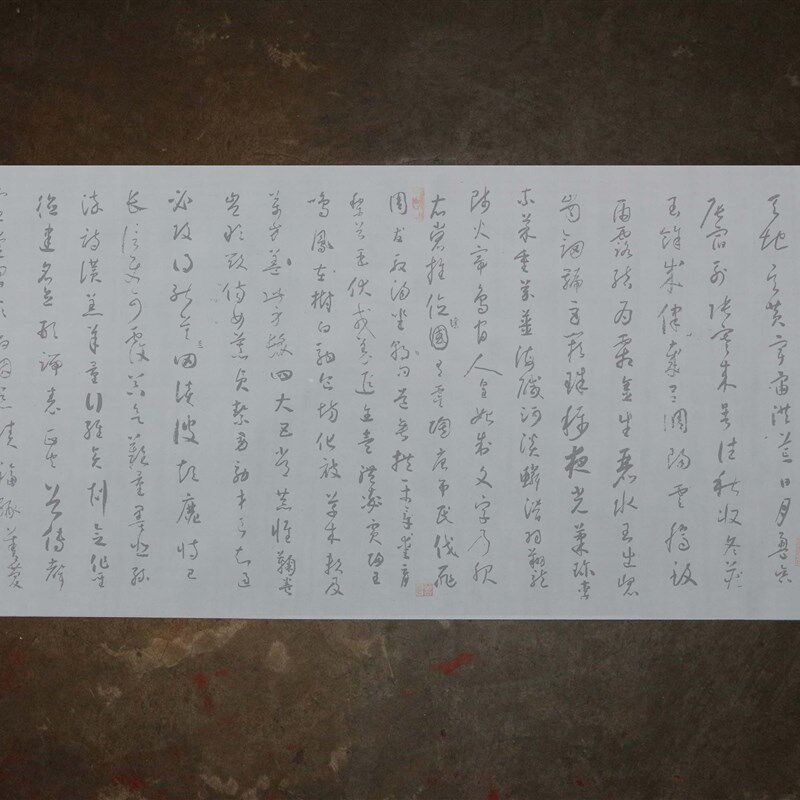 天地玄黃宇宙洪荒日月盈昃
辰宿列張寒來暑往秋收冬藏
閏餘成歲律呂調陽雲騰致
雨露結為霜金生麗水玉出崑
崗劍號巨闕珠稱夜光菓珍李
柰菜重芥薑海鹹河淡鱗潛羽翔龍
師火帝鳥官人皇始制文字乃服
衣裳推位讓國有虞陶唐弔民伐罪
周發殷湯坐朝問道垂拱平章愛育
黎首臣伏戎羌遐邇壹體率賓歸王
鳴鳳在樹白駒食場化被草木賴及
萬方蓋此身髮四大五常恭惟鞠養
豈敢毀傷女慕貞絜男效才良知過
必改得能莫忘罔談彼短靡恃己
長信使可覆器欲難量墨悲絲
染詩讚羔羊景行維賢剋念作聖
德建名立形端表正空谷傳聲
虛堂習聽禍因惡積福緣善慶